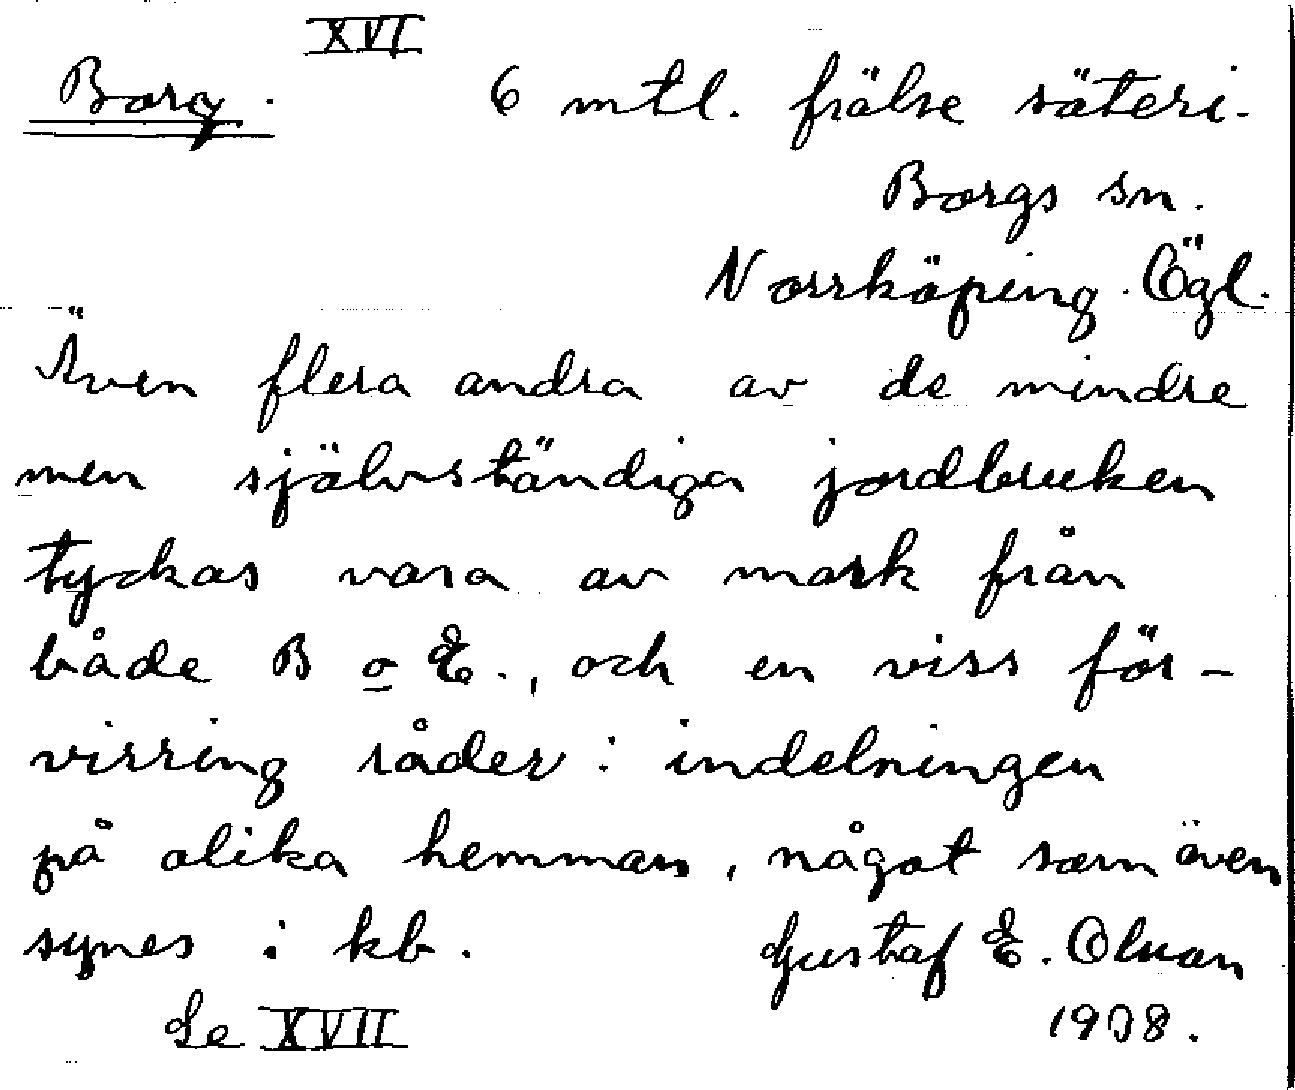 XVI
Borg. 6 mtl. frälse säteri.
Borgs sn.
Norrköping. Ögl.
Även flera andra av de mindre
men självständiga jordbruken
tyckas vara av mark från
både B o E., och en viss för-
virring råder i indelningen
på olika hemman, något som även
synes i kb. Gustaf E. Olson
Se XVII 1938.